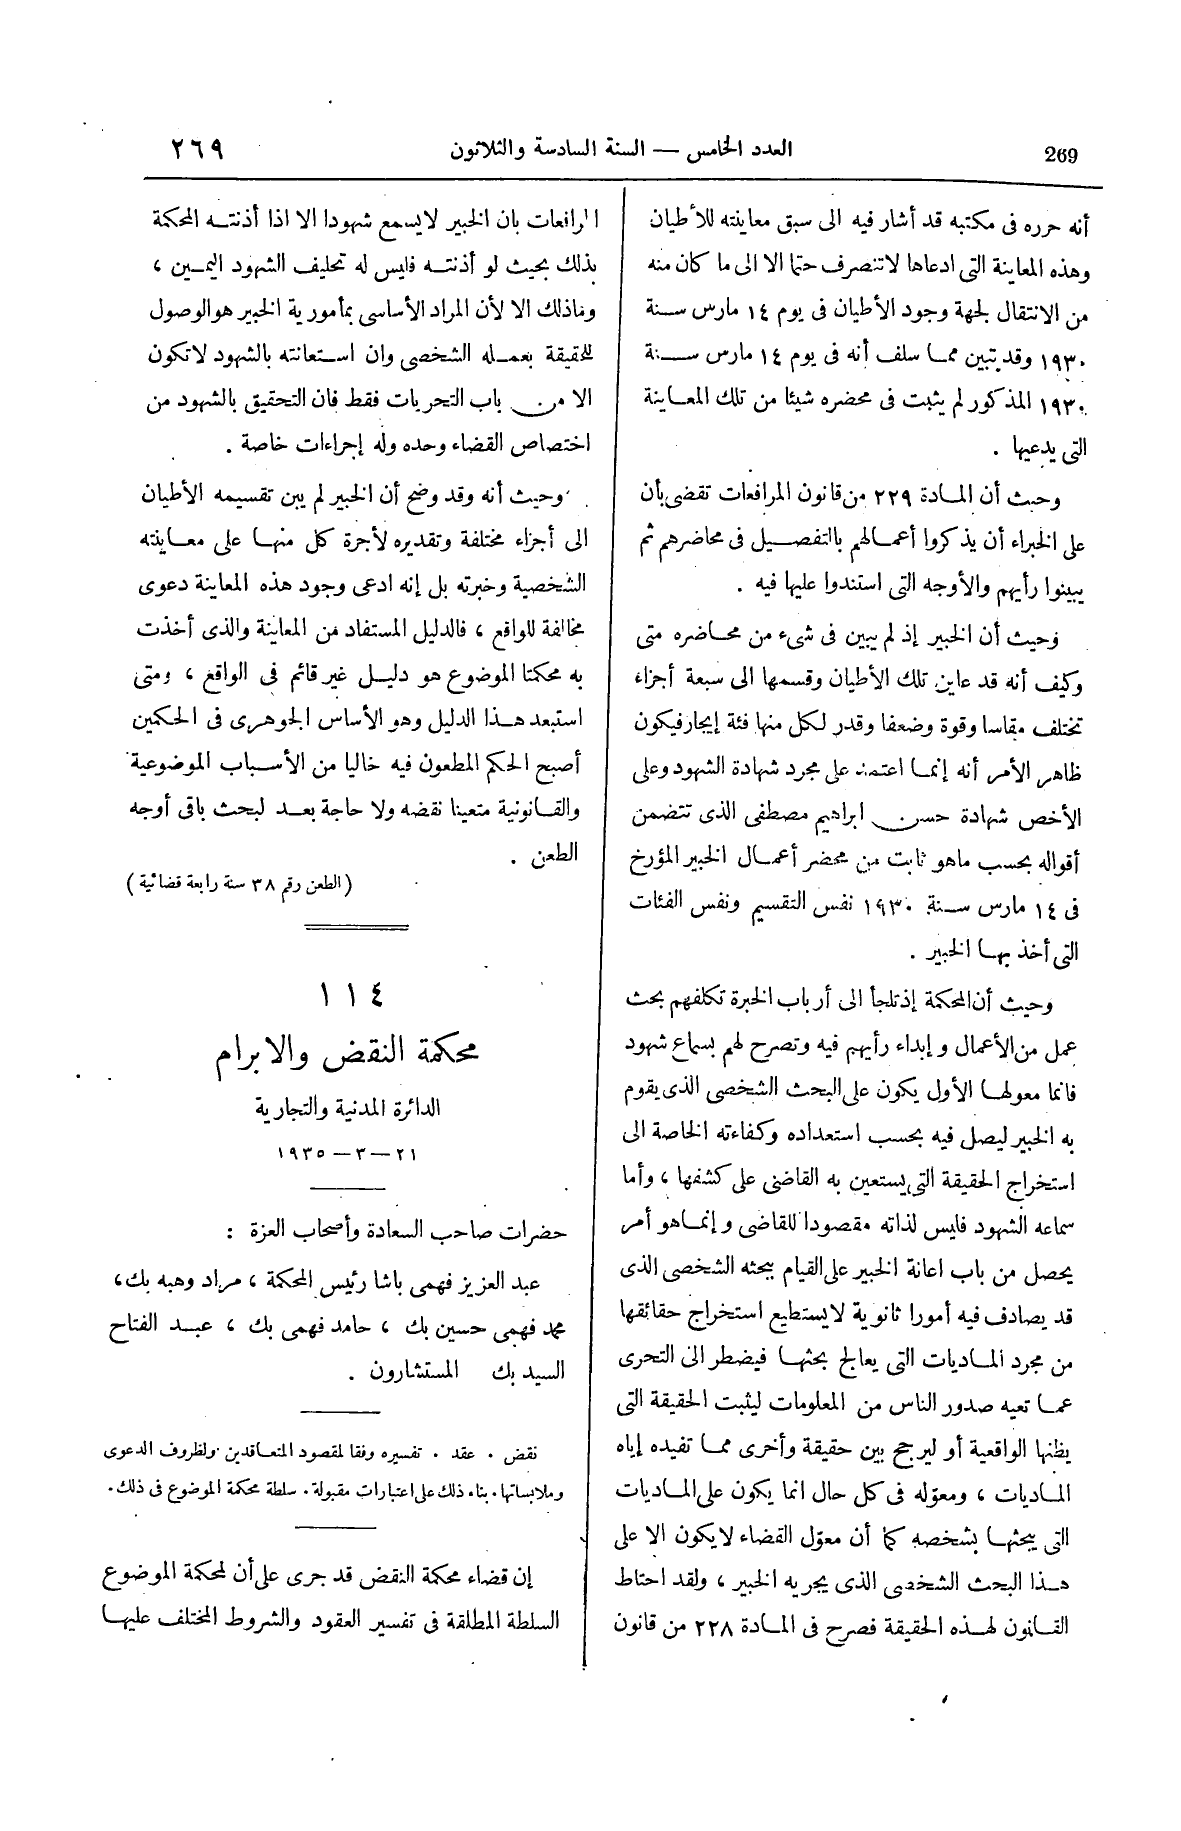 269
العدد الخامس — السنة السادسة والثلاثون
٢٦٩
أنه حرره فى مكتبه قد أشار فيه الى سبق معاينته للأطيان
وهذه المعاينة التى ادعاها لاتنصرف حتما الا الى ما كان منه
من الانتقال لجهة وجود الأطيان فى يوم ١٤ مارس سنة
١٩٣٠ وقد تبين مما سلف أنه فى يوم ١٤ مارس سنة
١٩٣٠ المذكور لم يثبت فى محضره شيئا من تلك المعاينة
التى يدعيها .
وحيث أن المادة ٢٢٩ من قانون المرافعات تقضى بأن
على الخبراء أن يذكروا أعمالهم بالتفصيل فى محاضرهم ثم
يبينوا رأيهم والأوجه التى استندوا عليها فيه .
وحيث أن الخبير إذ لم يبين فى شىء من محاضره متى
وكيف أنه قد عاين تلك الأطيان وقسمها الى سبعة أجزاء
تختلف مقاسا وقوة وضعفا وقدر لكل منها فئة إيجار فيكون
ظاهر الأمر أنه إنما اعتمد على مجرد شهادة الشهود وعلى
الأخص شهادة حسن ابراهيم مصطفى الذى تتضمن
أقواله بحسب ماهو ثابت من محضر أعمال الخبير المؤرخ
فى ١٤ مارس سنة ١٩٣٠ نفس التقسيم ونفس الفئات
التى أخذ بها الخبير .
وحيث أن المحكمة إذ تلجأ الى أرباب الخبرة تكلفهم بحث
عمل من الأعمال وإبداء رأيهم فيه وتصرح لهم بسماع شهود
فانما معولها الأول يكون على البحث الشخصى الذى يقوم
به الخبير ليصل فيه بحسب استعداده وكفاءته الخاصة الى
استخراج الحقيقة التى يستعين به القاضى على كشفها ، وأما
سماعه الشهود فليس لذاته مقصودا للقاضى وإنما هو أمر
يحصل من باب اعانة الخبير على القيام ببحثه الشخصى الذى
قد يصادف فيه أمورا ثانوية لايستطيع استخراج حقائقها
من مجرد الماديات التى يعالج بحثها فيضطر الى التحرى
عما تعيه صدور الناس من المعلومات ليثبت الحقيقة التى
يظنها الواقعية أو ليرجح بين حقيقة وأخرى مما تفيده إياه
الماديات ، ومعوّله فى كل حال انما يكون على الماديات
التى يبحثها بشخصه كما أن معوّل القضاء لايكون الا على
هذا البحث الشخصى الذى يجريه الخبير ، ولقد احتاط
القانون لهذه الحقيقة فصرح فى المادة ٢٢٨ من قانون
المرافعات بان الخبير لايسمع شهودا الا اذا أذنته المحكمة
بذلك بحيث لو أذنته فليس له تحليف الشهود اليمين ،
وماذلك الا لأن المراد الأساسى بمأمورية الخبير هو الوصول
للحقيقة بعمله الشخصى وان استعانته بالشهود لاتكون
الا من باب التحريات فقط فان التحقيق بالشهود من
اختصاص القضاء وحده وله إجراءات خاصة .
وحيث أنه وقد وضح أن الخبير لم يبن تقسيمه الأطيان
الى أجزاء مختلفة وتقديره لأجرة كل منها على معاينته
الشخصية وخبرته بل إنه ادعى وجود هذه المعاينة دعوى
مخالفة للواقع ، فالدليل المستفاد من المعاينة والذى أخذت
به محكمتا الموضوع هو دليل غير قائم فى الواقع ، ومتى
استبعد هذا الدليل وهو الأساس الجوهرى فى الحكمين
أصبح الحكم المطعون فيه خاليا من الأسباب الموضوعية
والقانونية متعينا نقضه ولا حاجة بعد لبحث باقى أوجه
الطعن .
( الطعن رقم ٣٨ سنة رابعة قضائية )
١١٤
محكمة النقض والابرام
الدائرة المدنية والتجارية
٢١ — ٣ — ١٩٣٥
حضرات صاحب السعادة وأصحاب العزة :
عبد العزيز فهمى باشا رئيس المحكمة ، مراد وهبه بك،
محمد فهمى حسين بك ، حامد فهمى بك ، عبد الفتاح
السيد بك المستشارون .
نقض . عقد . تفسيره وفقا لمقصود المتعاقدين ولظروف الدعوى
وملابساتها . بناء ذلك على اعتبارات مقبولة . سلطة محكمة الموضوع فى ذلك .
إن قضاء محكمة النقض قد جرى على أن لمحكمة الموضوع
السلطة المطلقة فى تفسير العقود والشروط المختلف عليها